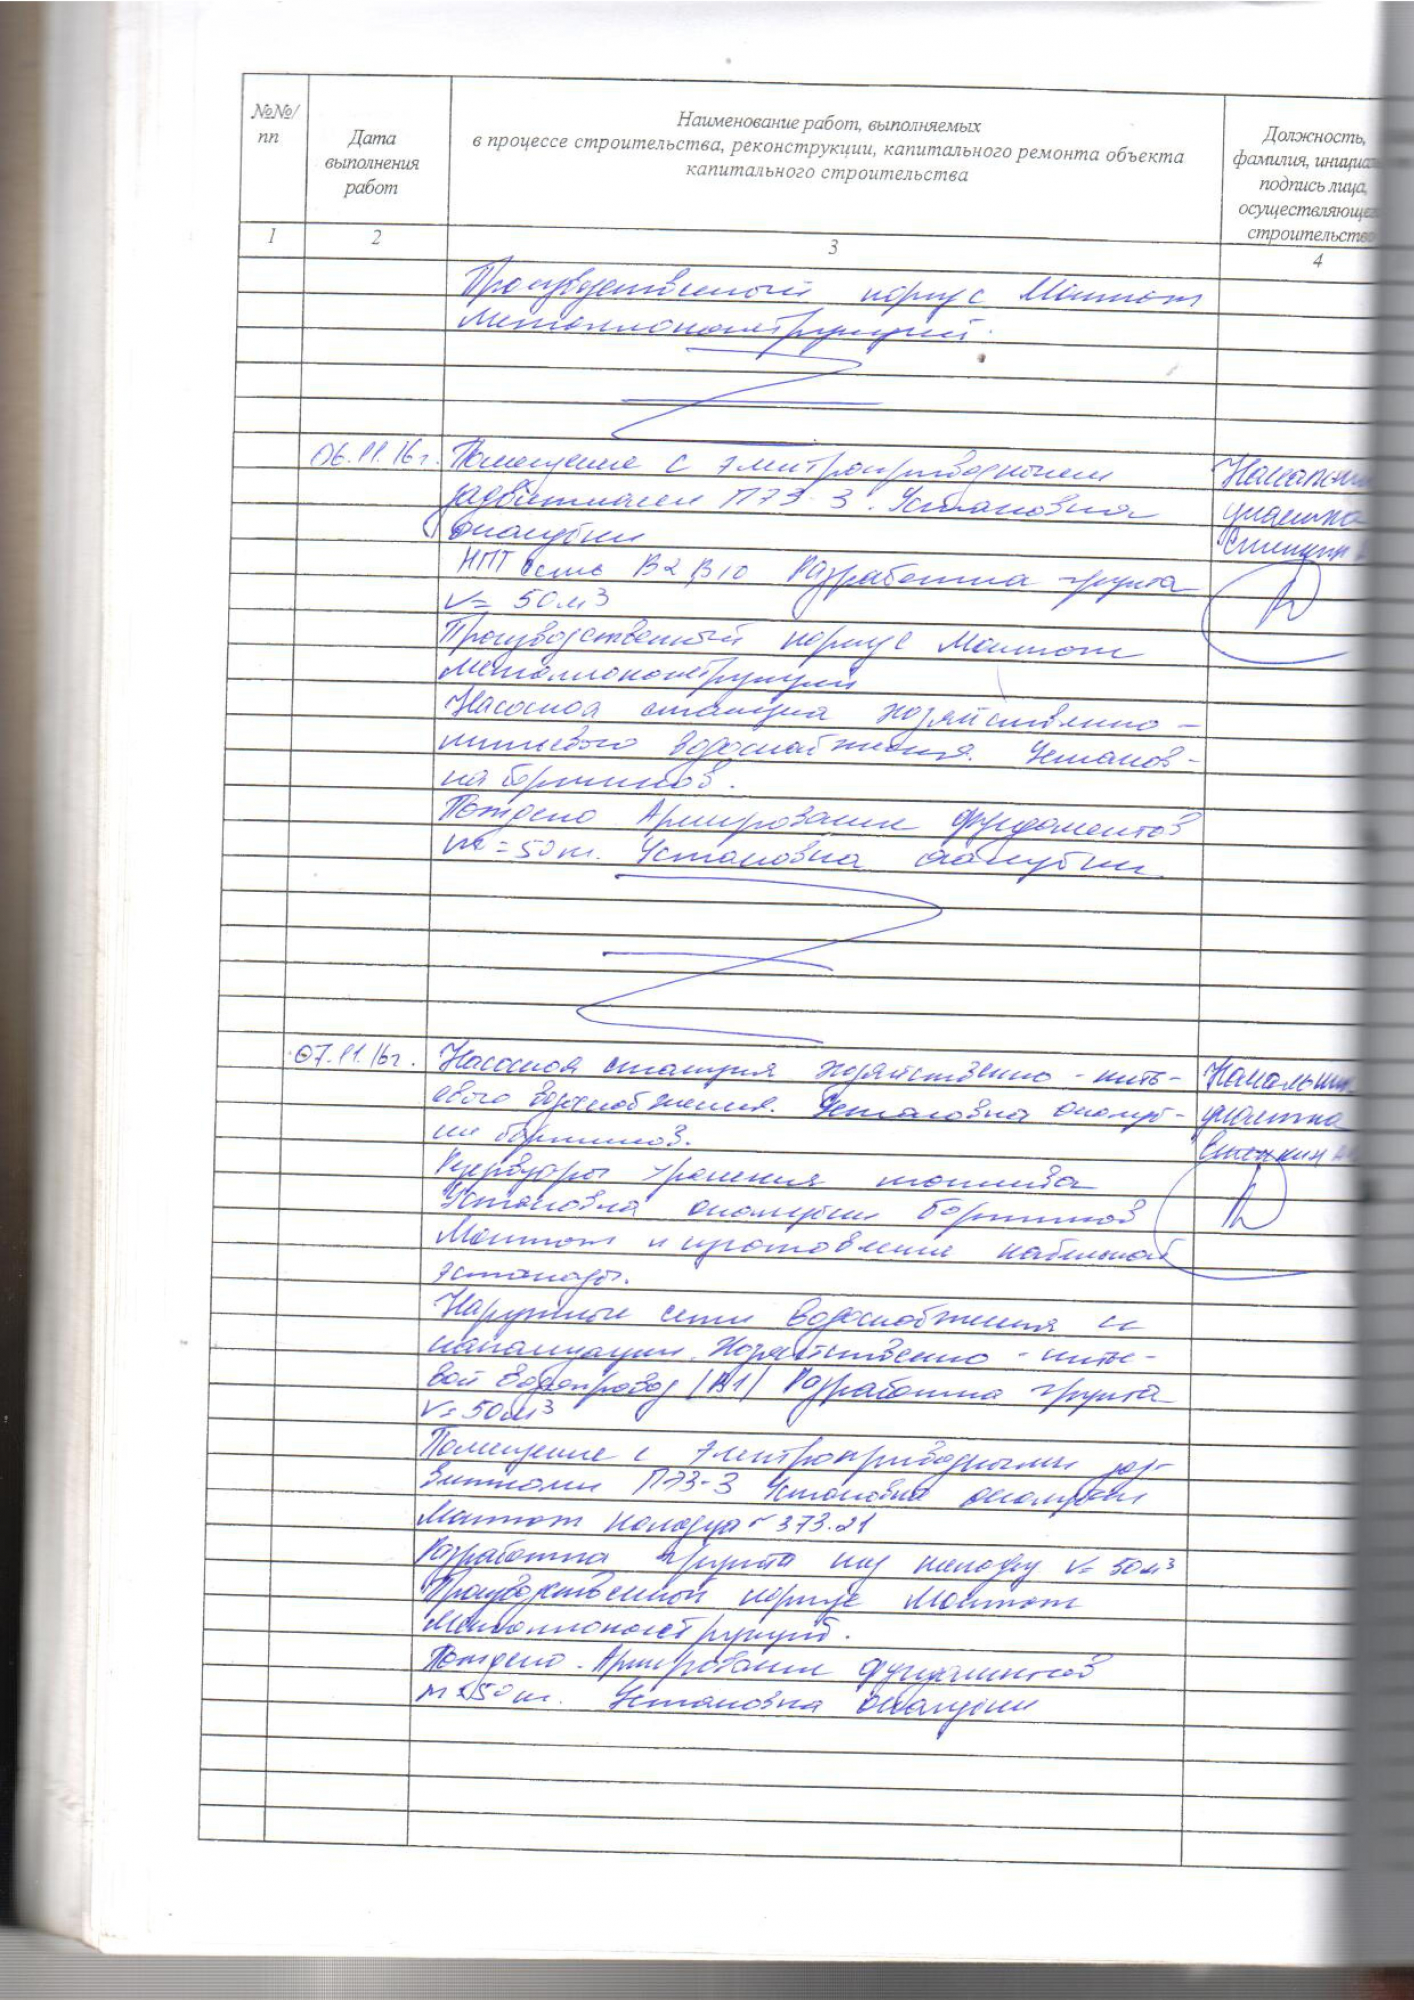 №№/
пп
Дата
выполнения
работ
Наименование работ, выполняемых
в процессе строительства, реконструкции, капитального ремонта объекта
капитального строительства
Должность,
фамилия, инициал
подпись лица,
осуществляющег
строительство
1 2 3 4
Производственный корпус Монтаж
металлоконструкций.
06.11.16г. Помещение с электроприводными
задвижками ПЭЗ-3. Установка
опалубки
НПТ В2 В10 Разработка грунта
V= 50м3
Производственный корпус Монтаж
металлоконструкций
Насосная станция хозяйственно-
питьевого водоснабжения. Установ-
ка бортиков.
Пождепо Армирование фундаментов
m=50кг. Установка опалубки
Начальник
участка
07.11.16г. Насосная станция хозяйственно-пить-
евого водоснабжения. Установка опалуб-
ки бортиков.
Резервуары хранения топлива
Установка опалубки бортиков
Монтаж и изготовление кабельной
эстакады.
Наружные сети водоснабжения и
канализации. Хозяйственно-пить-
вой водопровод (В1) Разработка грунта
V= 50м3
Помещение с электроприводными зад-
вижками ПЭЗ-3 Установка опалубки
Монтаж колодца 373.21
Разработка грунта под V= 50м3
Производственный корпус Монтаж
металлоконструкций.
Пождепо. Армирование фундаментов
m=50кг. Установка опалубки
Начальник
участка